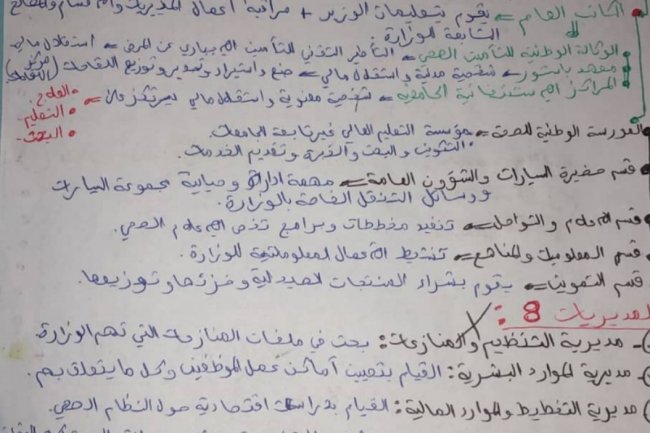 الكاتب العام = يقوم بتعليمات الوزير + مراقبة أعمال المديريات والأقسام والمصالح
التابعة للوزارة.
الوكالة الوطنية للتأمين الصحي = التأطير التقني للتأمين الإجباري عن المرض = استقلال مالي
معهد باستور = شخصية مدنية واستقلال مالي = صنع واستيراد وتوزيع اللقاحات
المراكز الاستشفائية الجامعية = شخصية معنوية واستقلال مالي يرتكز على =
العلاج.
التعليم.
البحث.
المدرسة الوطنية للصحة = مؤسسة التعليم العالي غير تابعة للجامعات.
التكوين والبحث والخبرة وتقديم الخدمات.
قسم حضيرة السيارات والشؤون العامة = مهمة إدارة وصيانة مجموعة السيارات
ووسائل التنقل الخاصة بالوزارة.
قسم الإعلام والتواصل = تنفيد مخططات وبرامج تخص الإعلام الصحي.
قسم المعلوميات والمناهج = تنشيط الأعمال المعلوماتية للوزارة.
قسم التموين = يقوم بشراء المنتجات الصيدلية وخزنها وتوزيعها.
المديريات 8 :
- مديرية التنظيم والمنازعات: بحث في ملفات المنازعات التي تهم الوزارة.
- مديرية الموارد البشرية: القيام بتعيين أماكن عمل الموظفين وكل ما يتعلق بهم.
- مديرية التخطيط والموارد المالية: القيام بدراسات اقتصادية حول النظام الصحي.